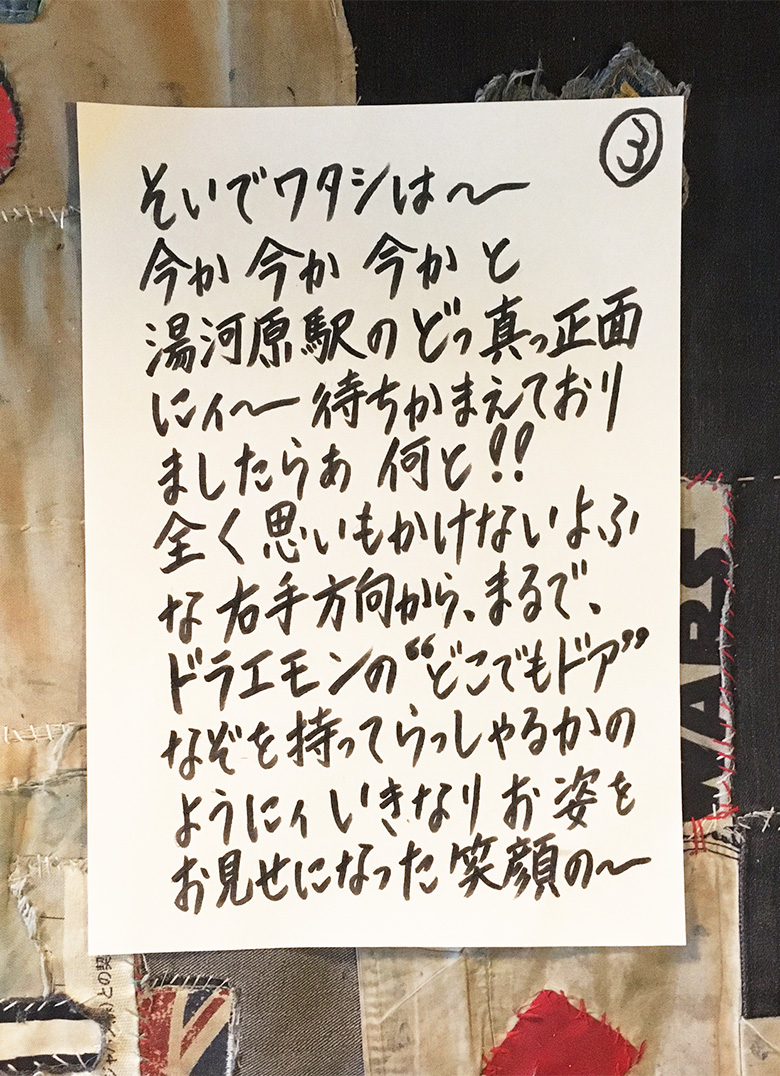 ③
そいでワタシは〜
今か 今か 今か と
湯河原駅の どっ真っ正面
にィ〜 待ちかまえており
ましたらぁ 何と!!
全く思いもかけないよふ
な 右手方向から、まるで、
ドラエモンの“どこでもドア”
なぞを持ってらっしゃるかの
ようにィ いきなり お姿を
お見せになった 笑顔の〜
WARS
との契